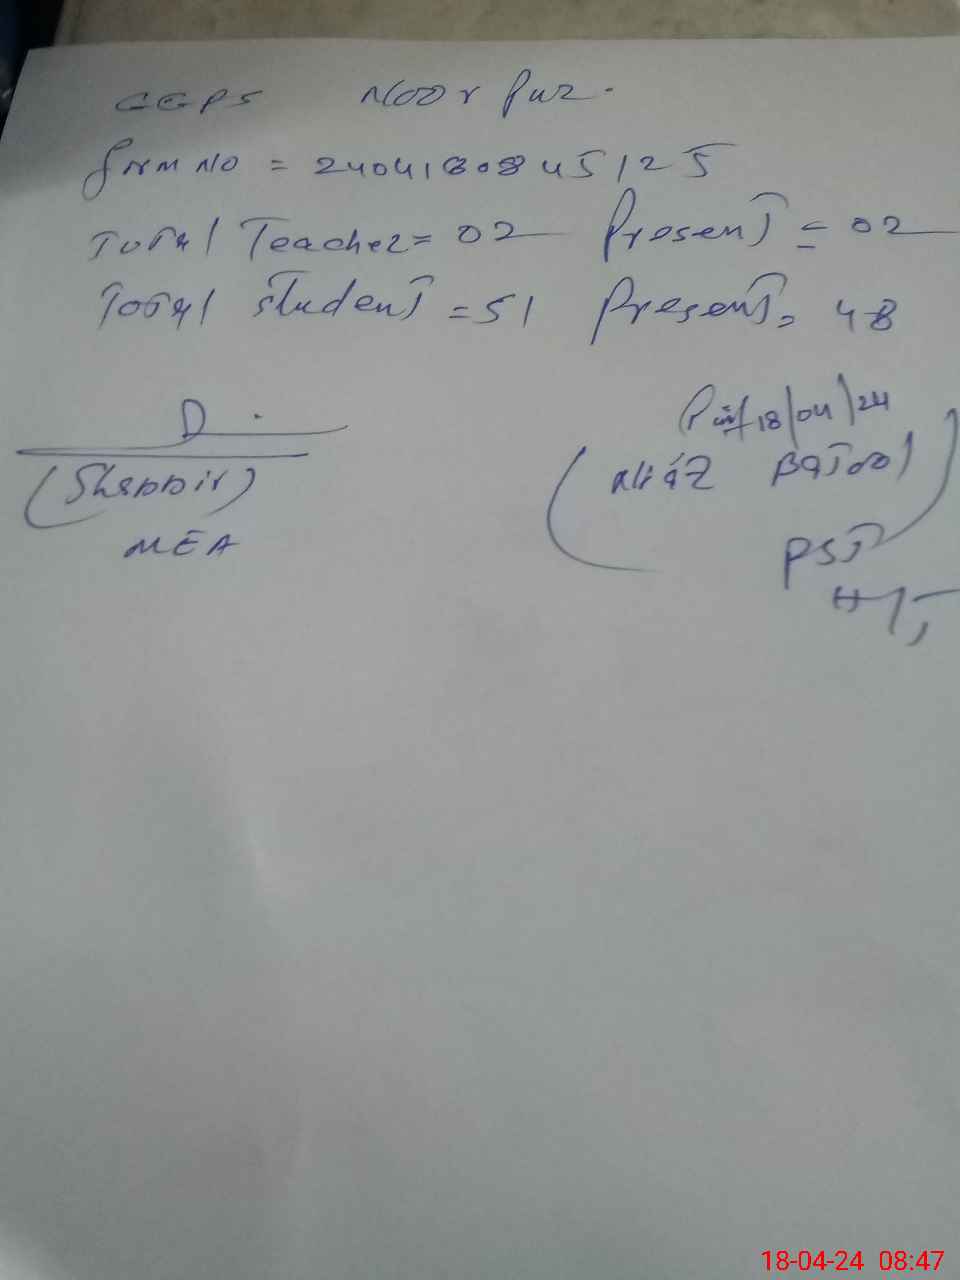 GGPS Noor Pur.
Form No = 2404180845125
Total Teacher = 02 Present = 02
Total Student = 51 Present = 48
18/04/24
(Shabbir)
Batool)
MEA
PST
18-04-24 08:47